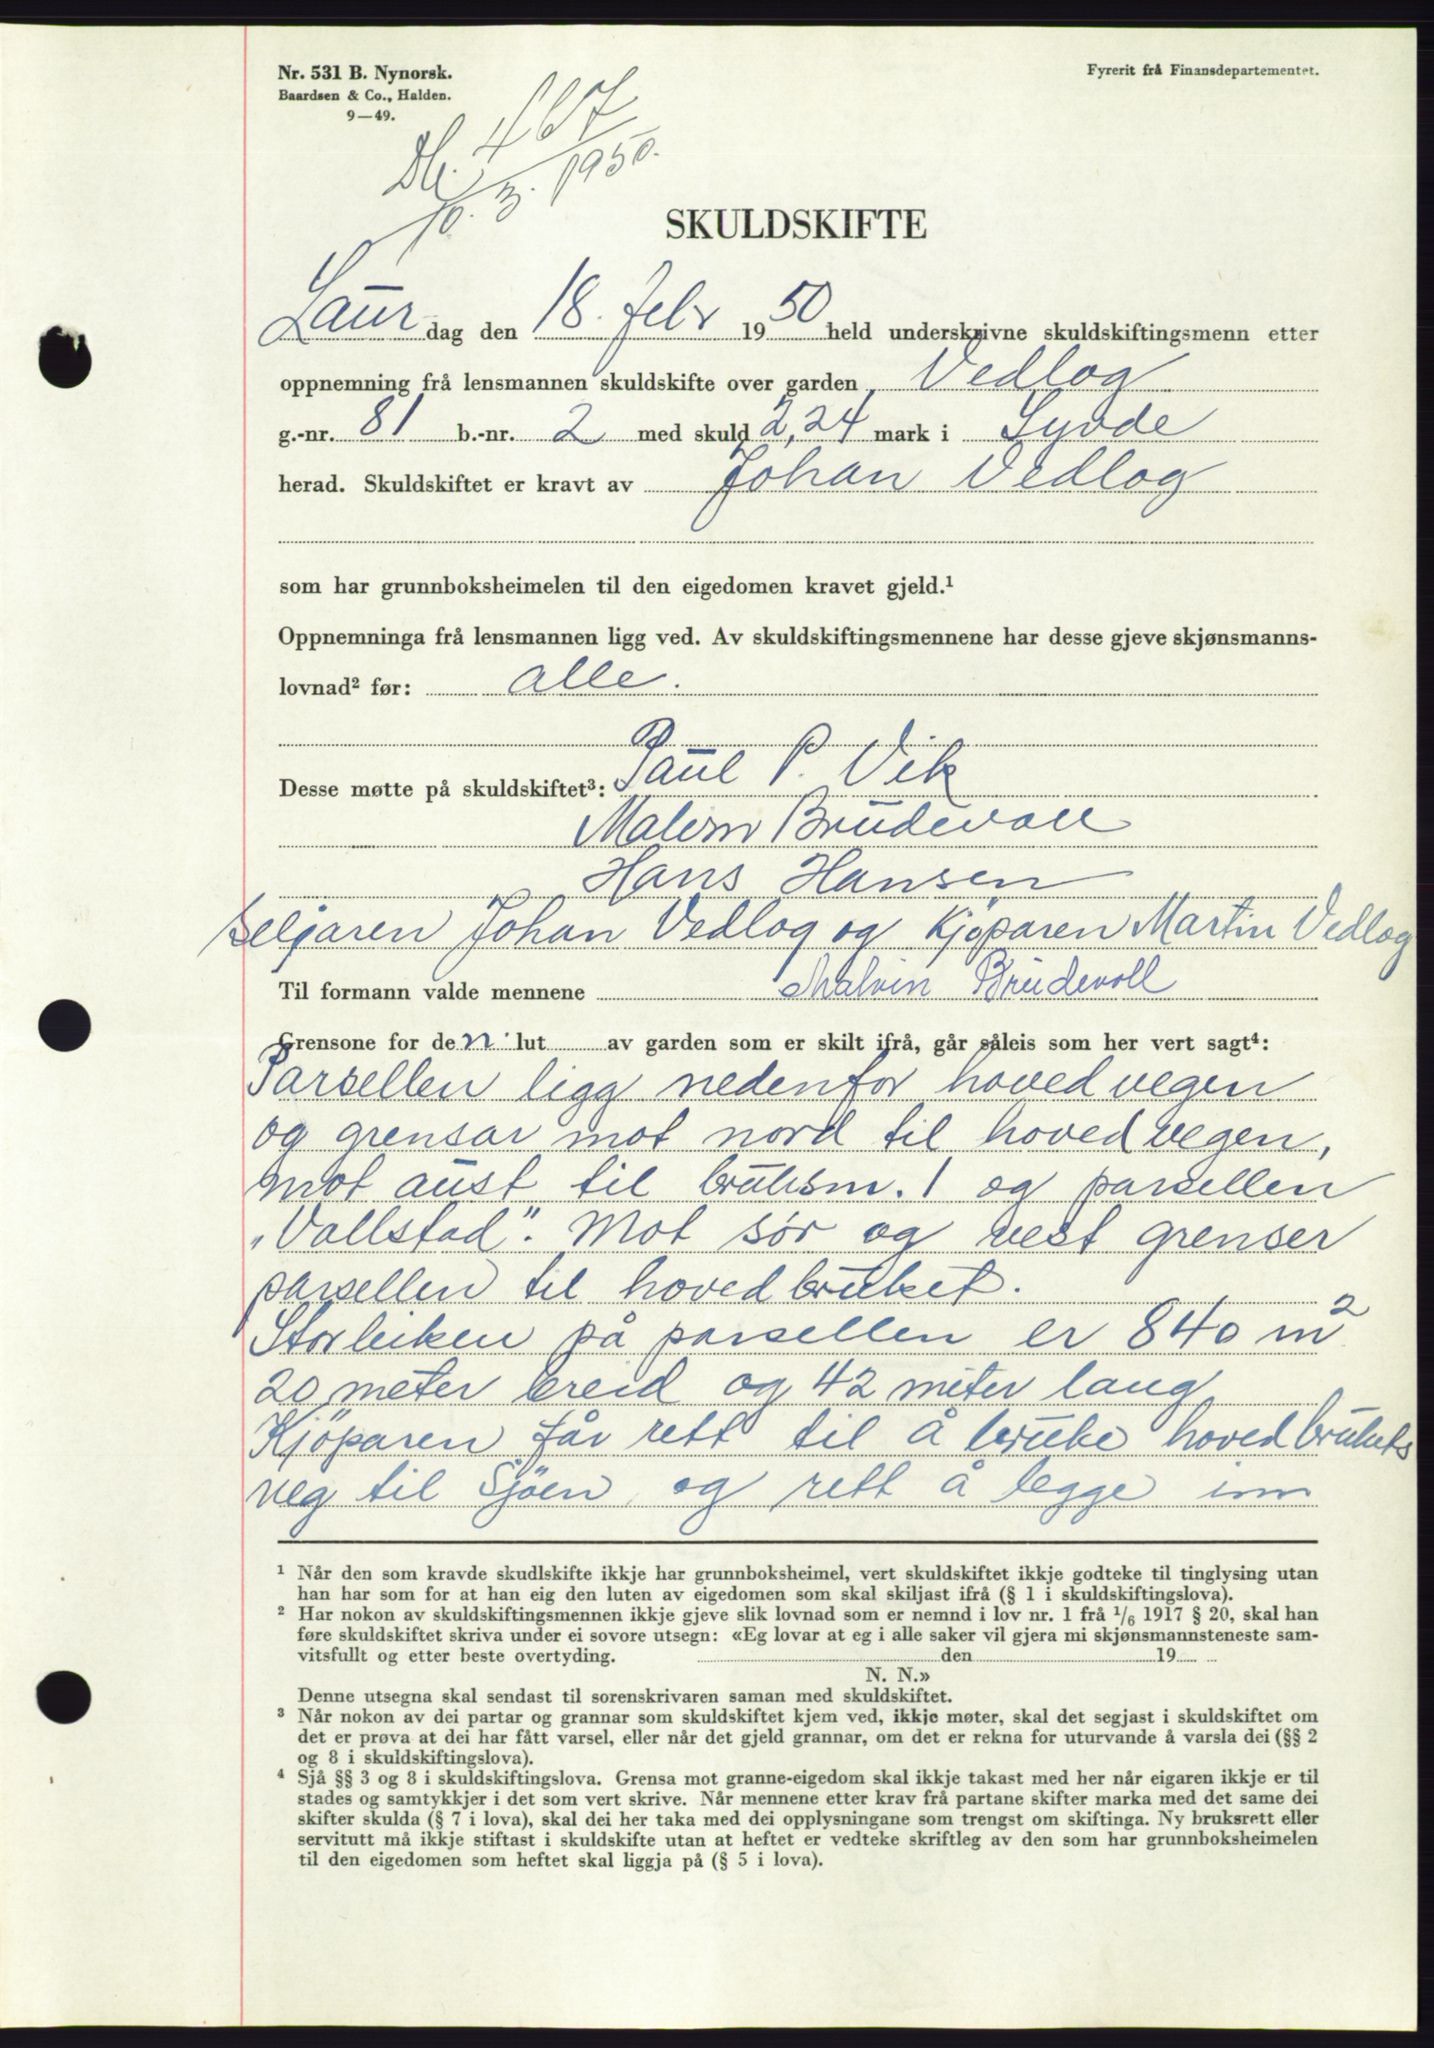 Nr. 531 B. Nynorsk.
Baardsen & Co., Halden.
9—49.
Fyrerit frå Finansdepartementet.
467
10. 3. 1950.
SKULDSKIFTE
Laur dag den 18. febr 1950 held underskrivne skuldskiftingsmenn etter
oppnemning frå lensmannen skuldskifte over garden Vedlog
g.-nr. 81 b.-nr. 2 med skuld 2,24 mark i Syvde
herad. Skuldskiftet er kravt av Johan Vedlog
som har grunnboksheimelen til den eigedomen kravet gjeld.¹
Oppnemninga frå lensmannen ligg ved. Av skuldskiftingsmennene har desse gjeve skjønsmanns-
lovnad² før: alle.
Desse møtte på skuldskiftet³: Paul P. Vik
Malvin Brudevoll
Hans Hansen
Seljaren Johan Vedlog og Kjöparen Martin Vedlog
Til formann valde mennene Malvin Brudevoll
Grensone for den lut av garden som er skilt ifrå, går såleis som her vert sagt⁴:
Parsellen ligg nedenfor hovedvegen
og grensar mot nord til hovedvegen,
mot aust til bruksnr. 1 og parsellen
„Vallstad". Mot sør og vest grenser
parsellen til hovedbruket.
Storleiken på parsellen er 840 m²
20 meter breid og 42 meter lang
Kjöparen får rett til å bruke hovedbrukets
veg til Sjöen, og rett å legge inn
¹ Når den som kravde skudlskifte ikkje har grunnboksheimel, vert skuldskiftet ikkje godteke til tinglysing utan
han har som for at han eig den luten av eigedomen som skal skiljast ifrå (§ 1 i skuldskiftingslova).
² Har nokon av skuldskiftingsmennen ikkje gjeve slik lovnad som er nemnd i lov nr. 1 frå 1/6 1917 § 20, skal han
føre skuldskiftet skriva under ei sovore utsegn: «Eg lovar at eg i alle saker vil gjera mi skjønsmannsteneste sam-
vitsfullt og etter beste overtyding. den 19
N. N.»
Denne utsegna skal sendast til sorenskrivaren saman med skuldskiftet.
³ Når nokon av dei partar og grannar som skuldskiftet kjem ved, ikkje møter, skal det segjast i skuldskiftet om
det er prøva at dei har fått varsel, eller når det gjeld grannar, om det er rekna for uturvande å varsla dei (§§ 2
og 8 i skuldskiftingslova).
⁴ Sjå §§ 3 og 8 i skuldskiftingslova. Grensa mot granne-eigedom skal ikkje takast med her når eigaren ikkje er til
stades og samtykkjer i det som vert skrive. Når mennene etter krav frå partane skifter marka med det same dei
skifter skulda (§ 7 i lova), skal dei her taka med dei opplysningane som trengst om skiftinga. Ny bruksrett eller
servitutt må ikkje stiftast i skuldskifte utan at heftet er vedteke skriftleg av den som har grunnboksheimelen
til den eigedomen som heftet skal liggja på (§ 5 i lova).